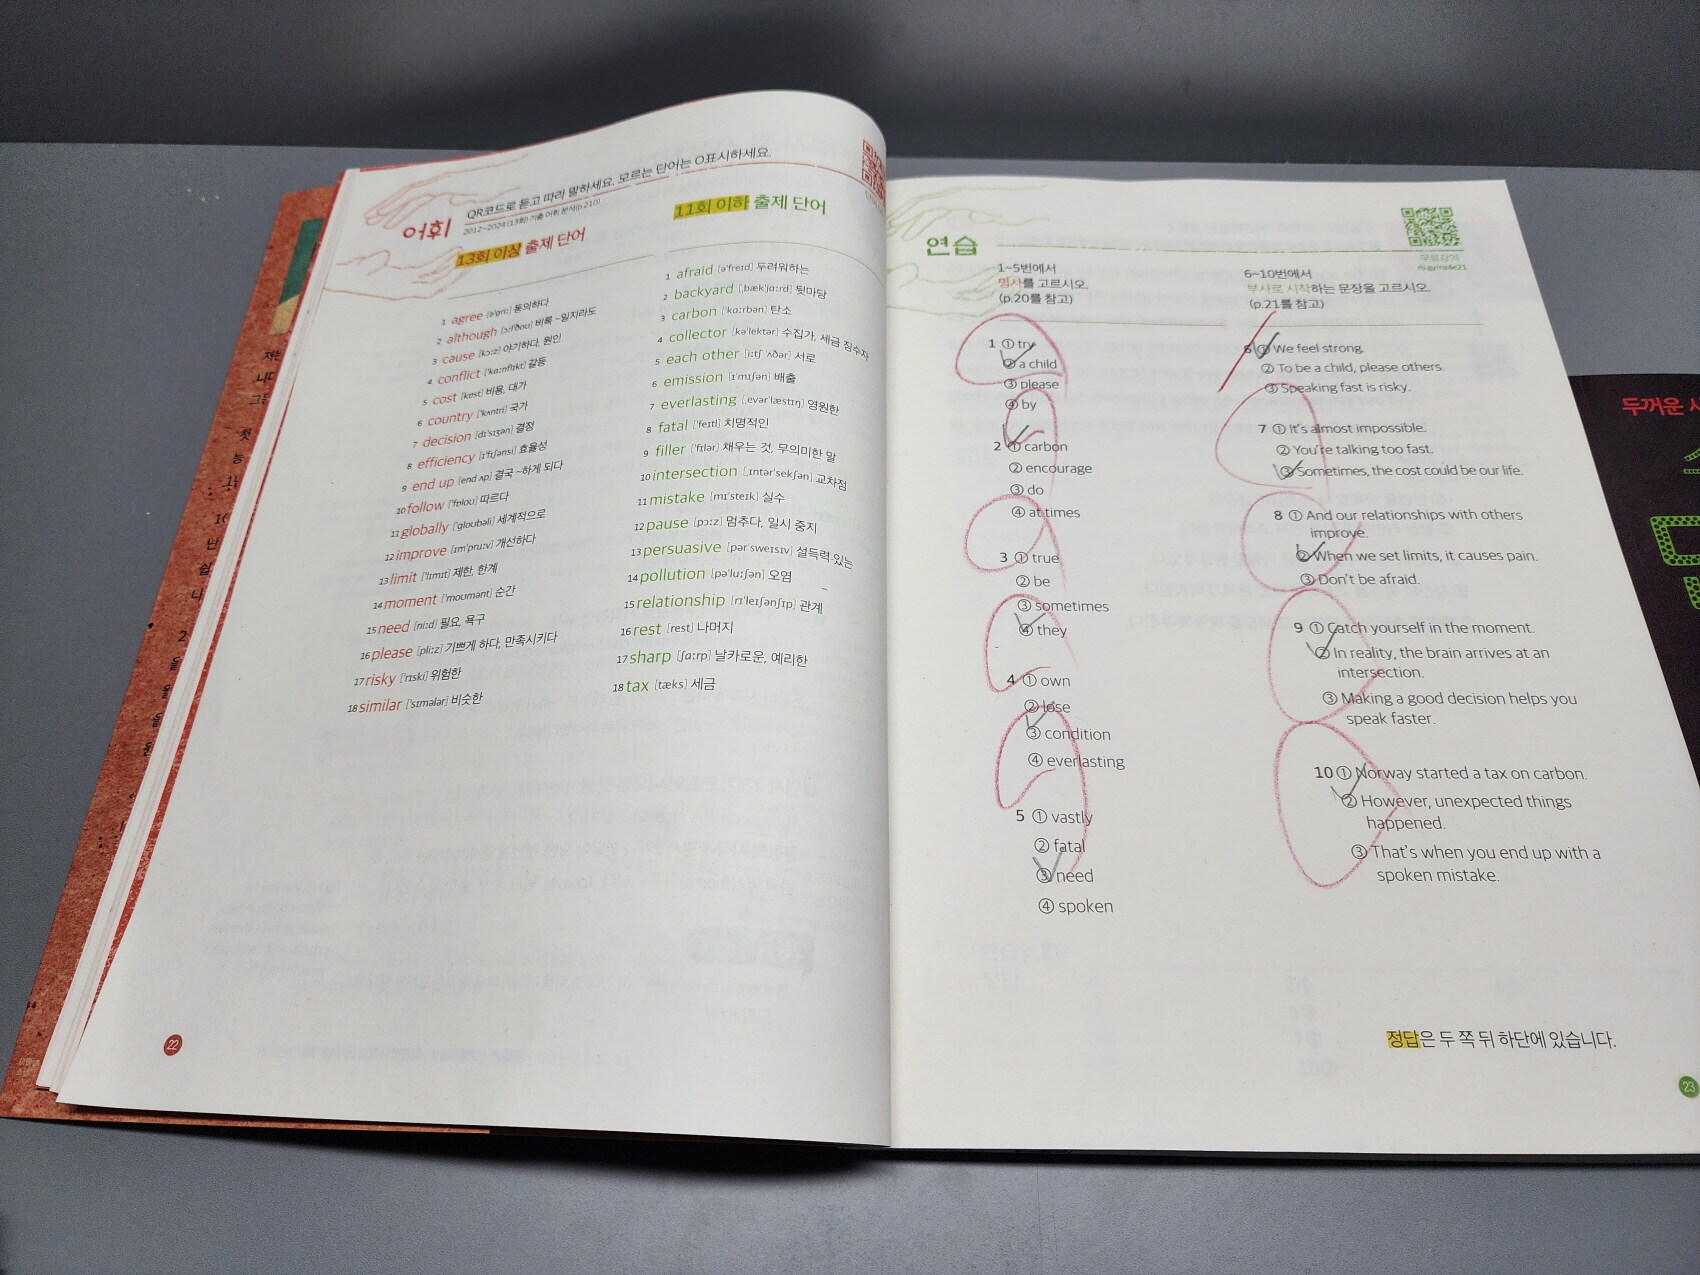 어휘
QR코드로 듣고 따라 말하세요. 모르는 단어는 O표시하세요.
2012~2024 (13회) 기출 어휘 분석(p.210)
13회 이상 출제 단어
1 agree [ə'gri:] 동의하다
2 although [ɔ:l'ðoʊ] 비록 ~일지라도
3 cause [kɔ:z] 야기하다, 원인
4 conflict ['kɑ:nflɪkt] 갈등
5 cost [kɒst] 비용, 대가
6 country ['kʌntri] 국가
7 decision [dɪ'sɪʒən] 결정
8 efficiency [ɪ'fɪʃənsi] 효율성
9 end up [end ʌp] 결국 ~하게 되다
10 follow ['fɒloʊ] 따르다
11 globally ['gloʊbəli] 세계적으로
12 improve [ɪm'pru:v] 개선하다
13 limit ['lɪmɪt] 제한, 한계
14 moment ['moʊmənt] 순간
15 need [ni:d] 필요, 욕구
16 please [pli:z] 기쁘게 하다, 만족시키다
17 risky ['rɪski] 위험한
18 similar ['sɪmələr] 비슷한
11회 이하 출제 단어
1 afraid [ə'freɪd] 두려워하는
2 backyard [ˌbæk'jɑ:rd] 뒷마당
3 carbon ['kɑ:rbən] 탄소
4 collector [kə'lektər] 수집가, 세금 징수자
5 each other [i:tʃ 'ʌðər] 서로
6 emission [ɪ'mɪʃən] 배출
7 everlasting [ˌevər'læstɪŋ] 영원한
8 fatal ['feɪtl] 치명적인
9 filler ['fɪlər] 채우는 것, 무의미한 말
10 intersection [ˌɪntər'sekʃən] 교차점
11 mistake [mɪ'steɪk] 실수
12 pause [pɔ:z] 멈추다, 일시 중지
13 persuasive [pər'sweɪsɪv] 설득력 있는
14 pollution [pə'lu:ʃən] 오염
15 relationship [rɪ'leɪʃənʃɪp] 관계
16 rest [rest] 나머지
17 sharp [ʃɑ:rp] 날카로운, 예리한
18 tax [tæks] 세금
22
연습
무료강의
1~5번에서
명사를 고르시오.
(p.20를 참고)
1 ① try
② a child
③ please
④ by
2 ① carbon
② encourage
③ do
④ at times
3 ① true
② be
③ sometimes
④ they
4 ① own
② lose
③ condition
④ everlasting
5 ① vastly
② fatal
③ need
④ spoken
6~10번에서
부사로 시작하는 문장을 고르시오.
(p.21를 참고)
6 ① We feel strong.
② To be a child, please others.
③ Speaking fast is risky.
7 ① It's almost impossible.
② You're talking too fast.
③ Sometimes, the cost could be our life.
8 ① And our relationships with others
improve.
② When we set limits, it causes pain.
③ Don't be afraid.
9 ① Catch yourself in the moment.
② In reality, the brain arrives at an
intersection.
③ Making a good decision helps you
speak faster.
10 ① Norway started a tax on carbon.
② However, unexpected things
happened.
③ That's when you end up with a
spoken mistake.
정답은 두 쪽 뒤 하단에 있습니다.
23
두꺼운